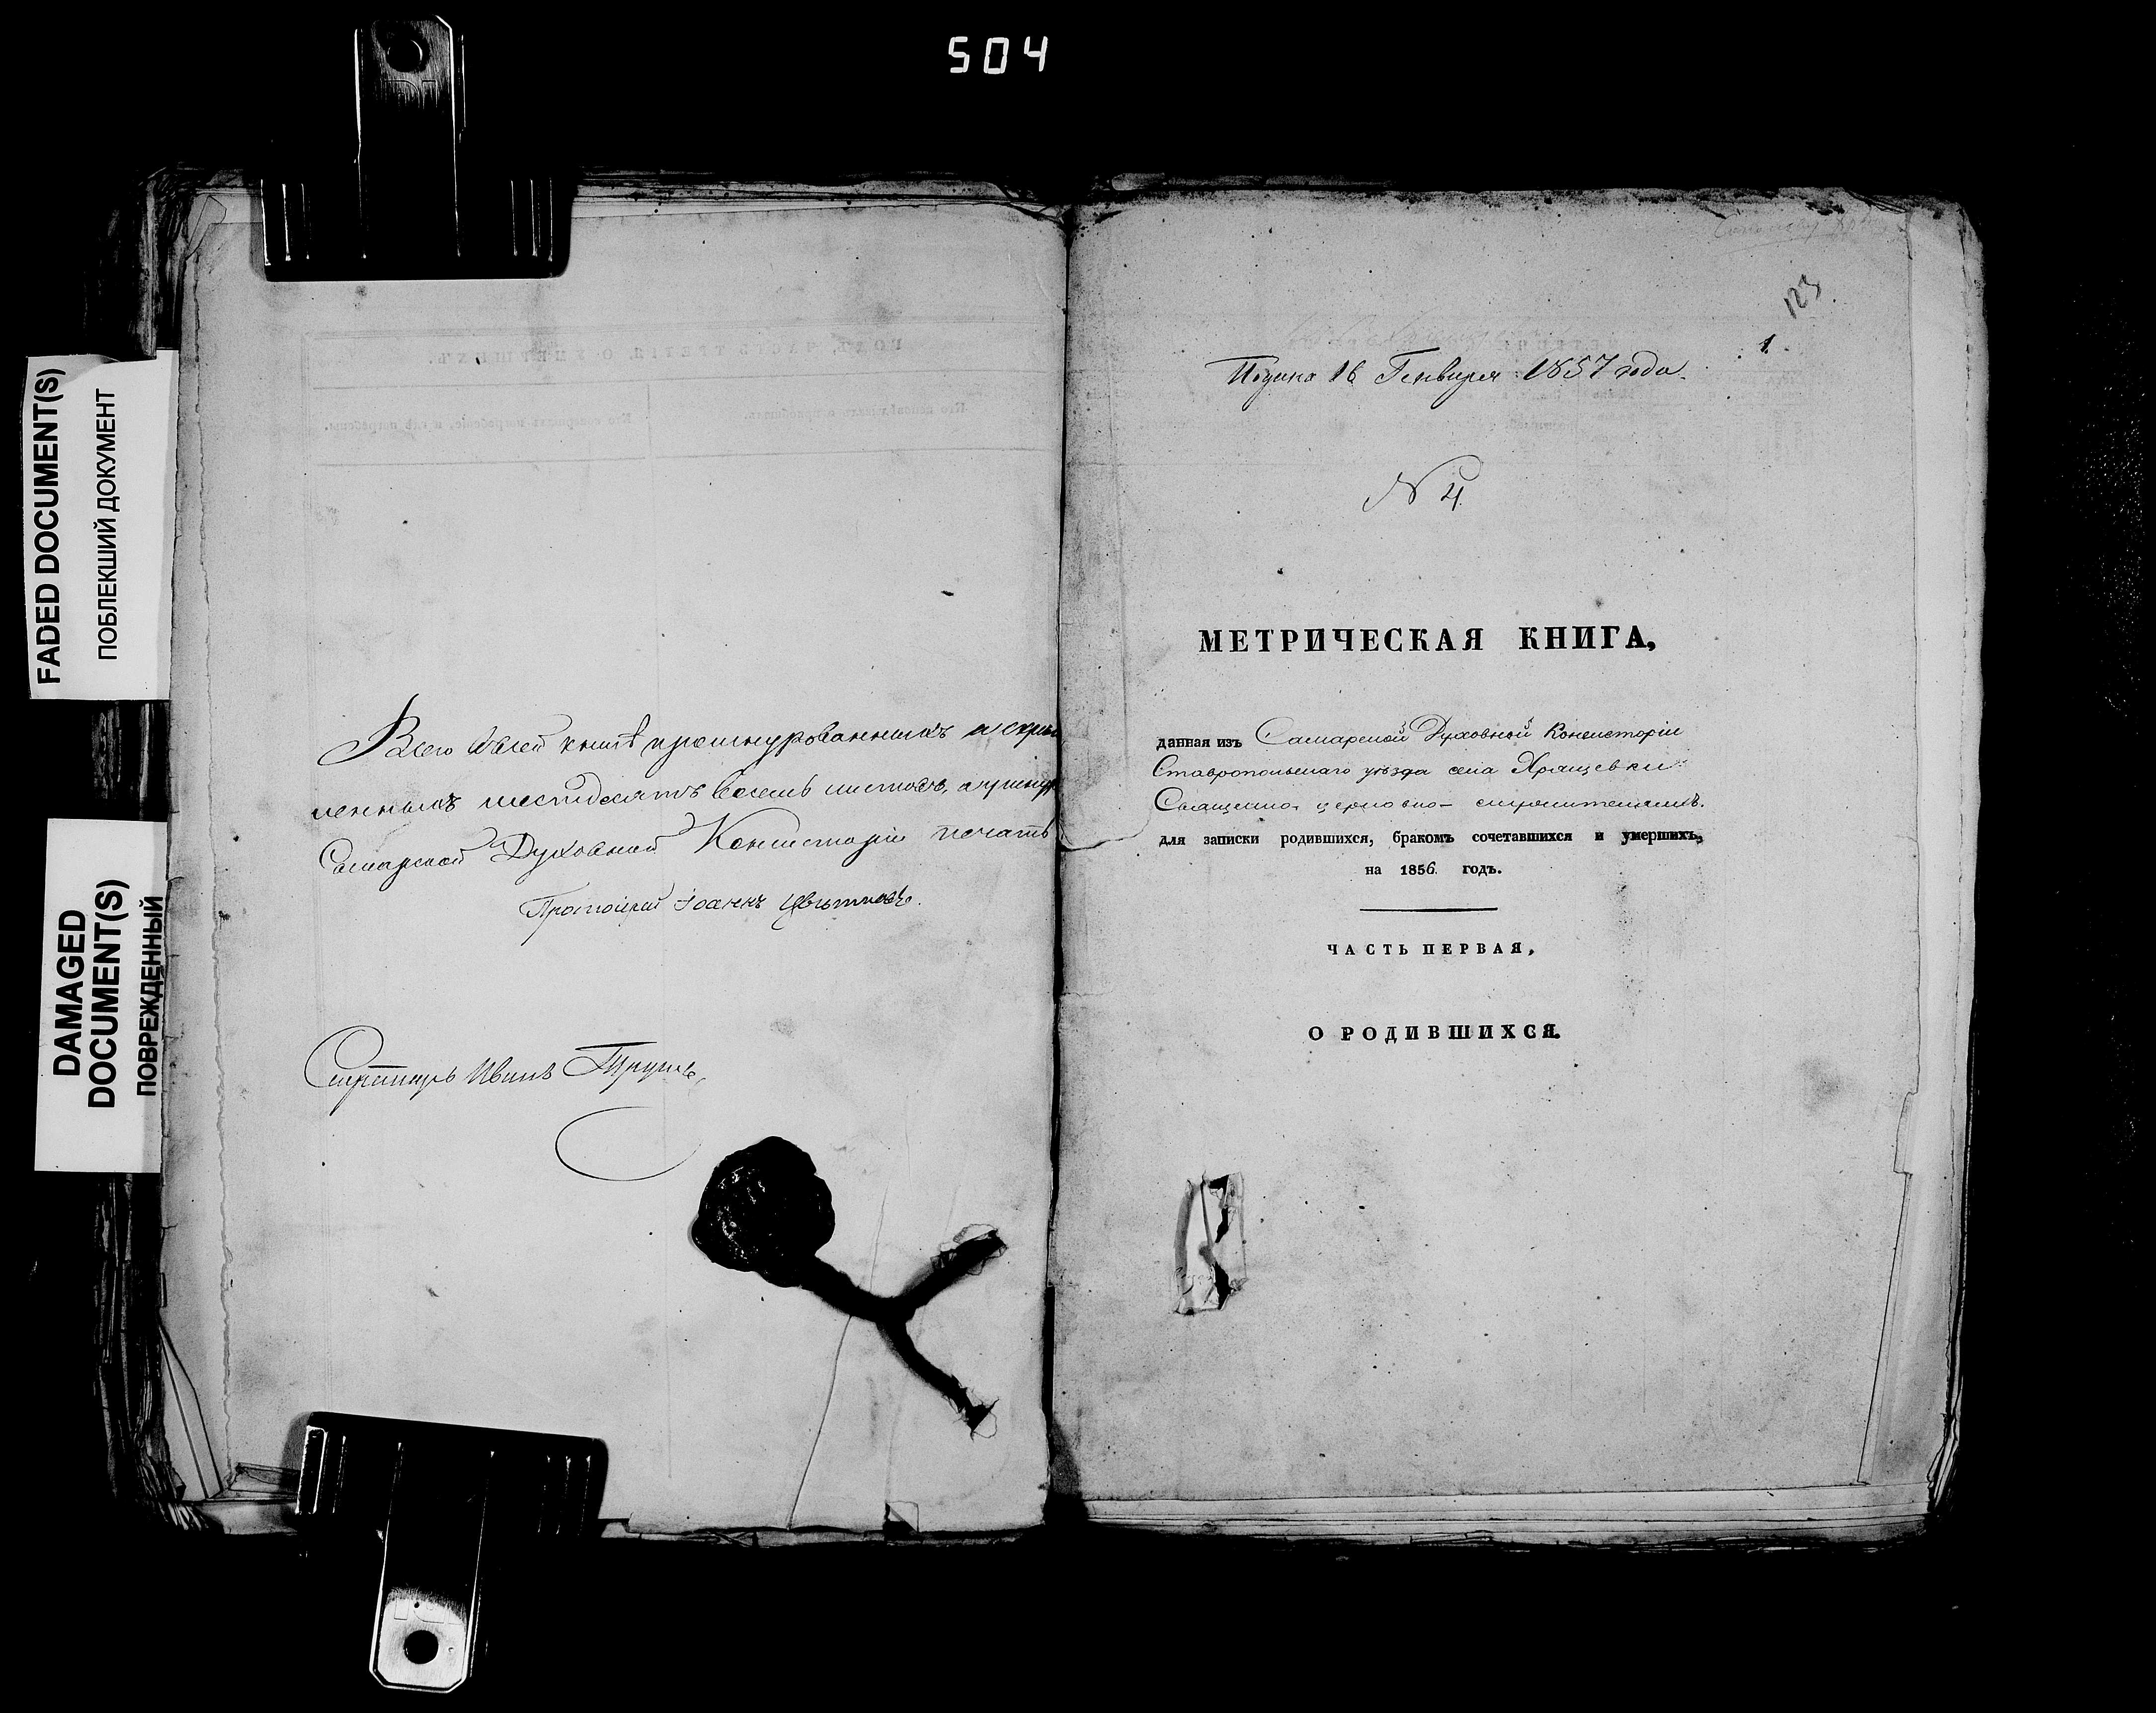 504
FADED DOCUMENT(S)
ПОБЛЕКШИЙ ДОКУМЕНТ
DAMAGED
DOCUMENT(S)
ПОВРЕЖДЕННЫЙ
Всего в сей книгѣ прошнурованныхъ и скрѣп
ленныхъ шестьдесятъ восемь листовъ, а у шнур
Самарской Духовной Консисторіи печать
Протоіерей Іоаннъ Цвѣтковъ.
Секретарь Иванъ
123
1.
Подана 16 Генваря 1857 года.
N 4.
МЕТРИЧЕСКАЯ КНИГА,
данная изъ Самарской Духовной Консисторіи
Ставропольскаго уѣзда села Хрящевки
Священно-церковно-служителямъ.
для записки родившихся, бракомъ сочетавшихся и умершихъ,
на 1856. годъ.
ЧАСТЬ ПЕРВАЯ,
О РОДИВШИХСЯ.